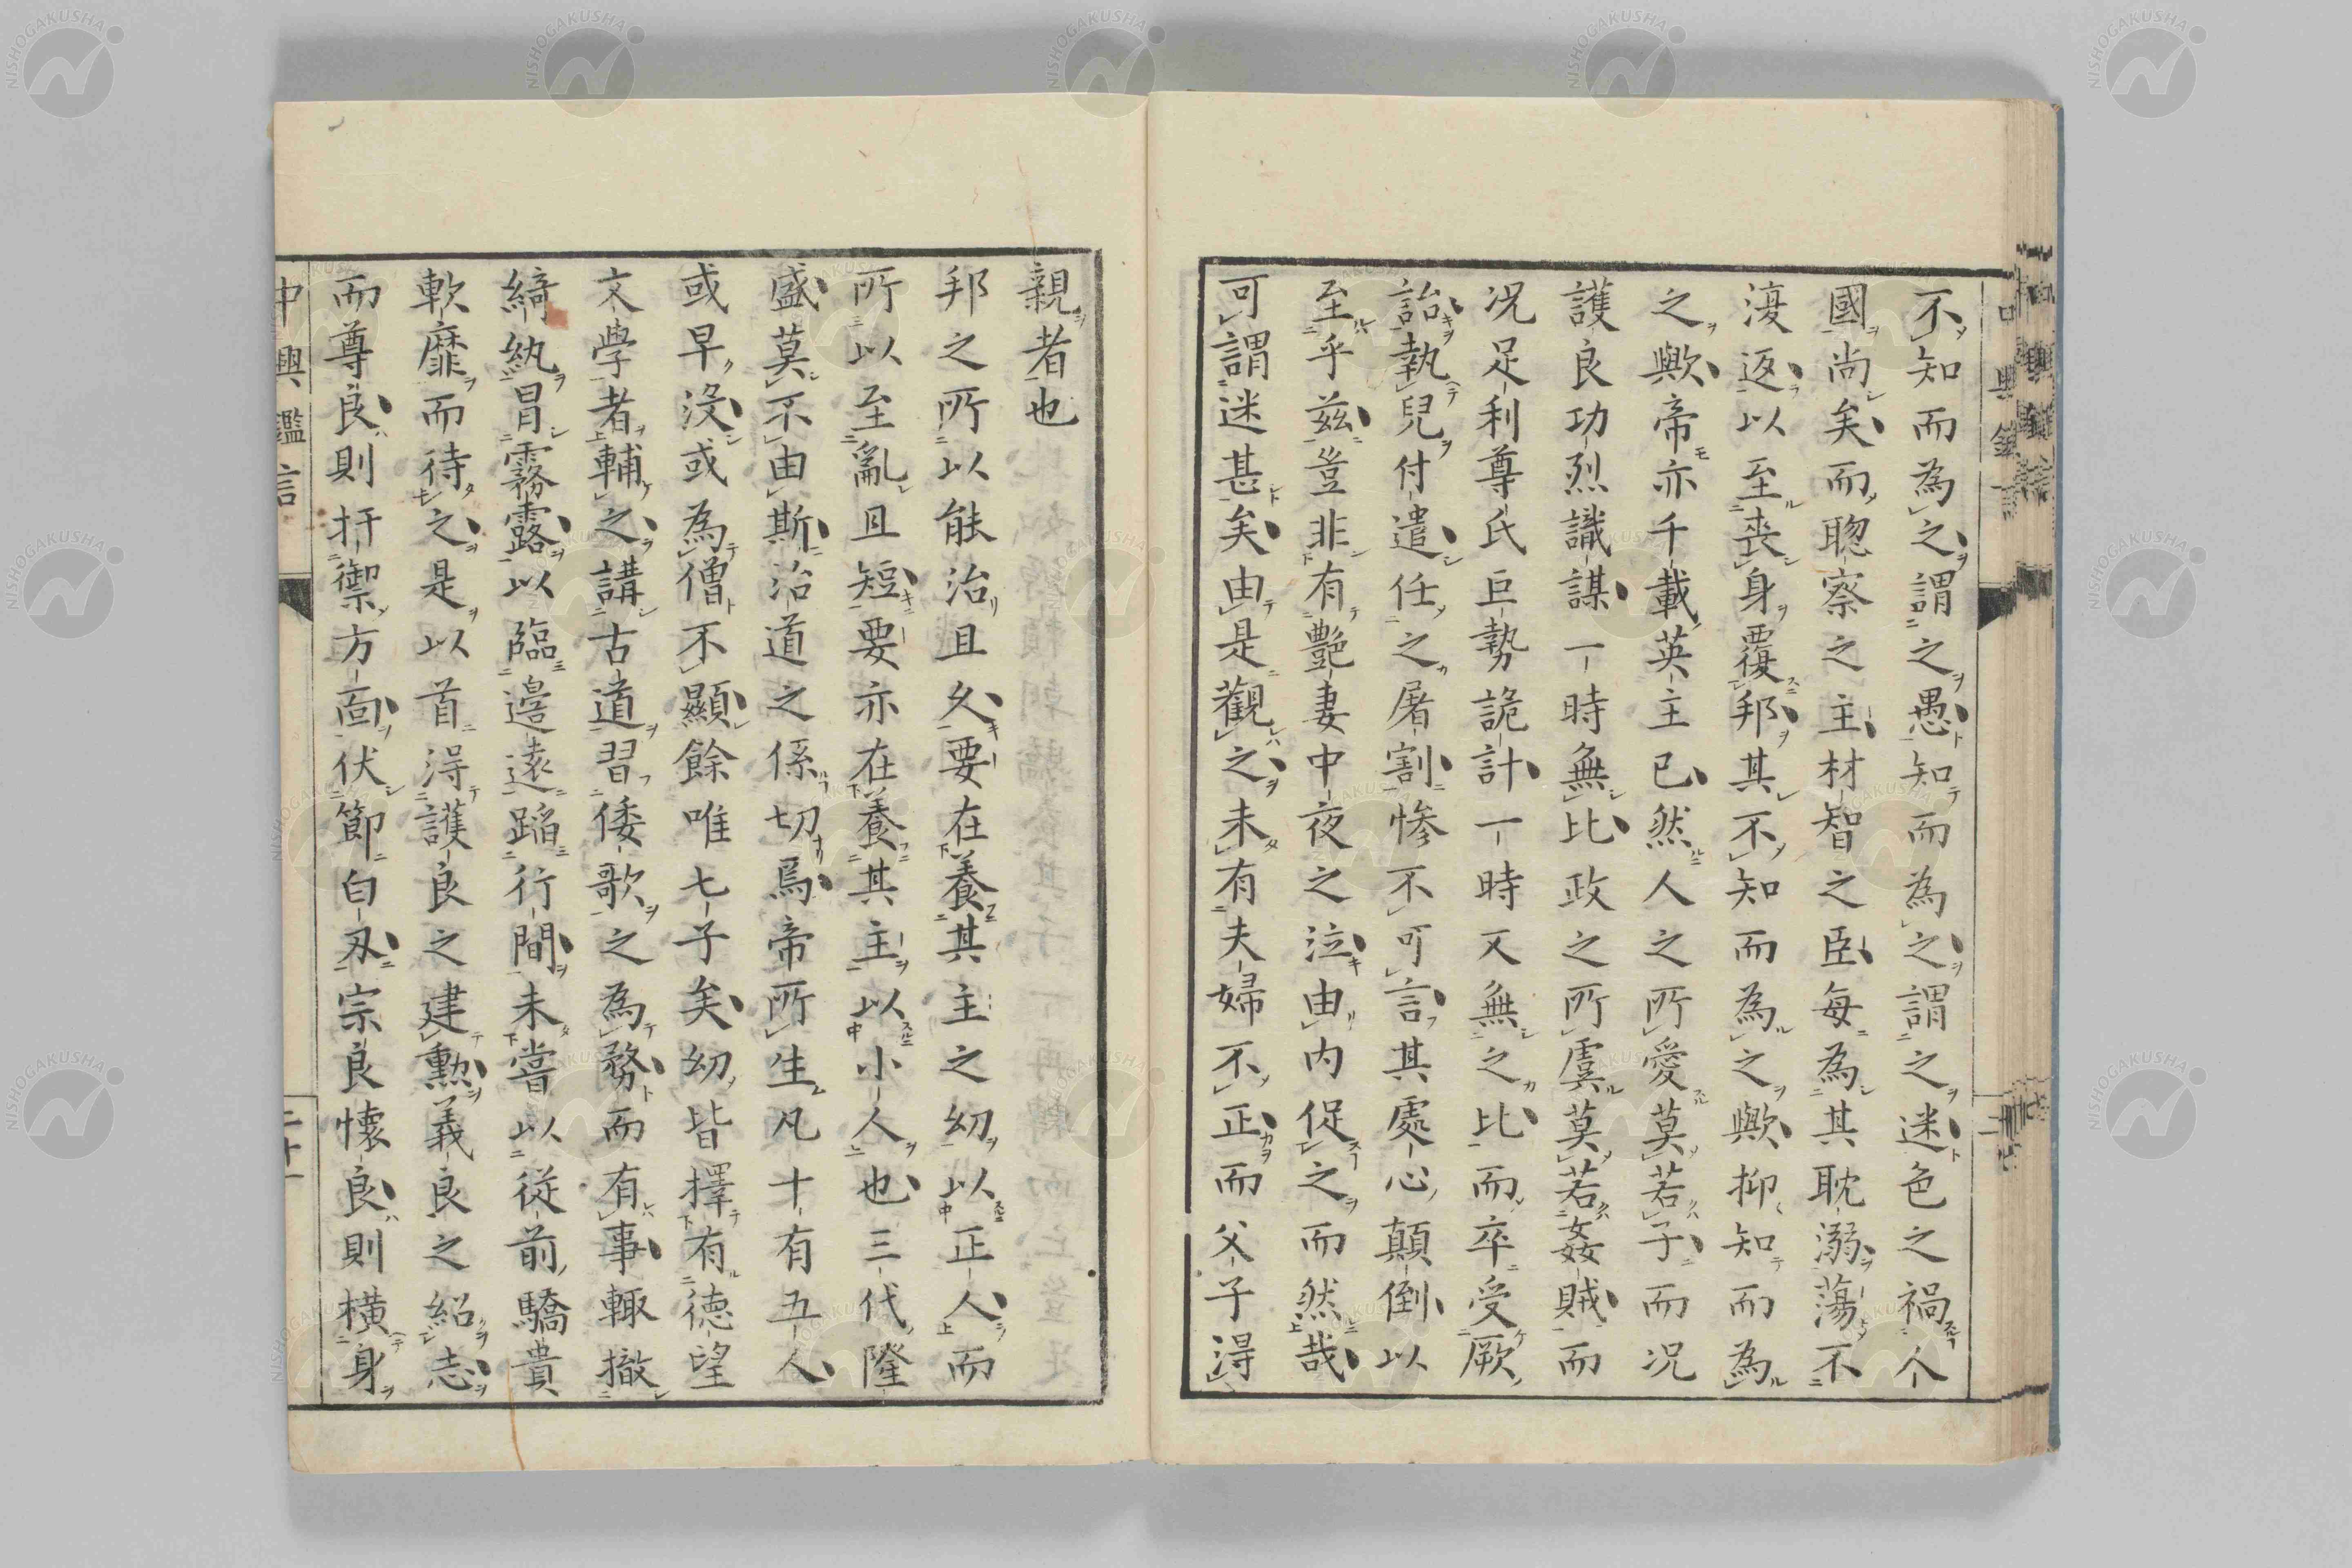 不知而為之謂之愚知而為之謂之迷色之禍人
國尚矣而聡察之主材智之臣每為其耽溺蕩不
復返以至喪身覆邦其不知而為之歟抑知而為
之歟帝亦千載英主已然人之所愛莫若子而况
護良功烈識謀一時無比政之所虞莫若姦賊而
况足利尊氏巨勢詭計一時又無之比而卒受厥
詒執兒付遣任之屠割惨不可言其處心顛倒以
至乎茲豈非有艷妻中夜之泣由内促之而然哉
可謂迷甚矣由是觀之未有夫婦不正而父子得
親者也
邦之所以能治且久要在養其主之幼以正人而
所以至亂且短要亦在養其主以小人也三代隆
盛莫不由斯治道之係切焉帝所生凡十有五人
或早沒或為僧不顯餘唯七子矣幼皆擇有德望
文學者輔之講古道習倭歌之為務而有事輙撤
綺紈冒霧露以臨邉遠蹈行間未嘗以従前驕貴
軟靡而待之是以首得護良之建勲義良之紹志
而尊良則扞禦方面伏節白刄宗良懷良則横身
中興鑑言
二十一
NISHOGAKUSHA